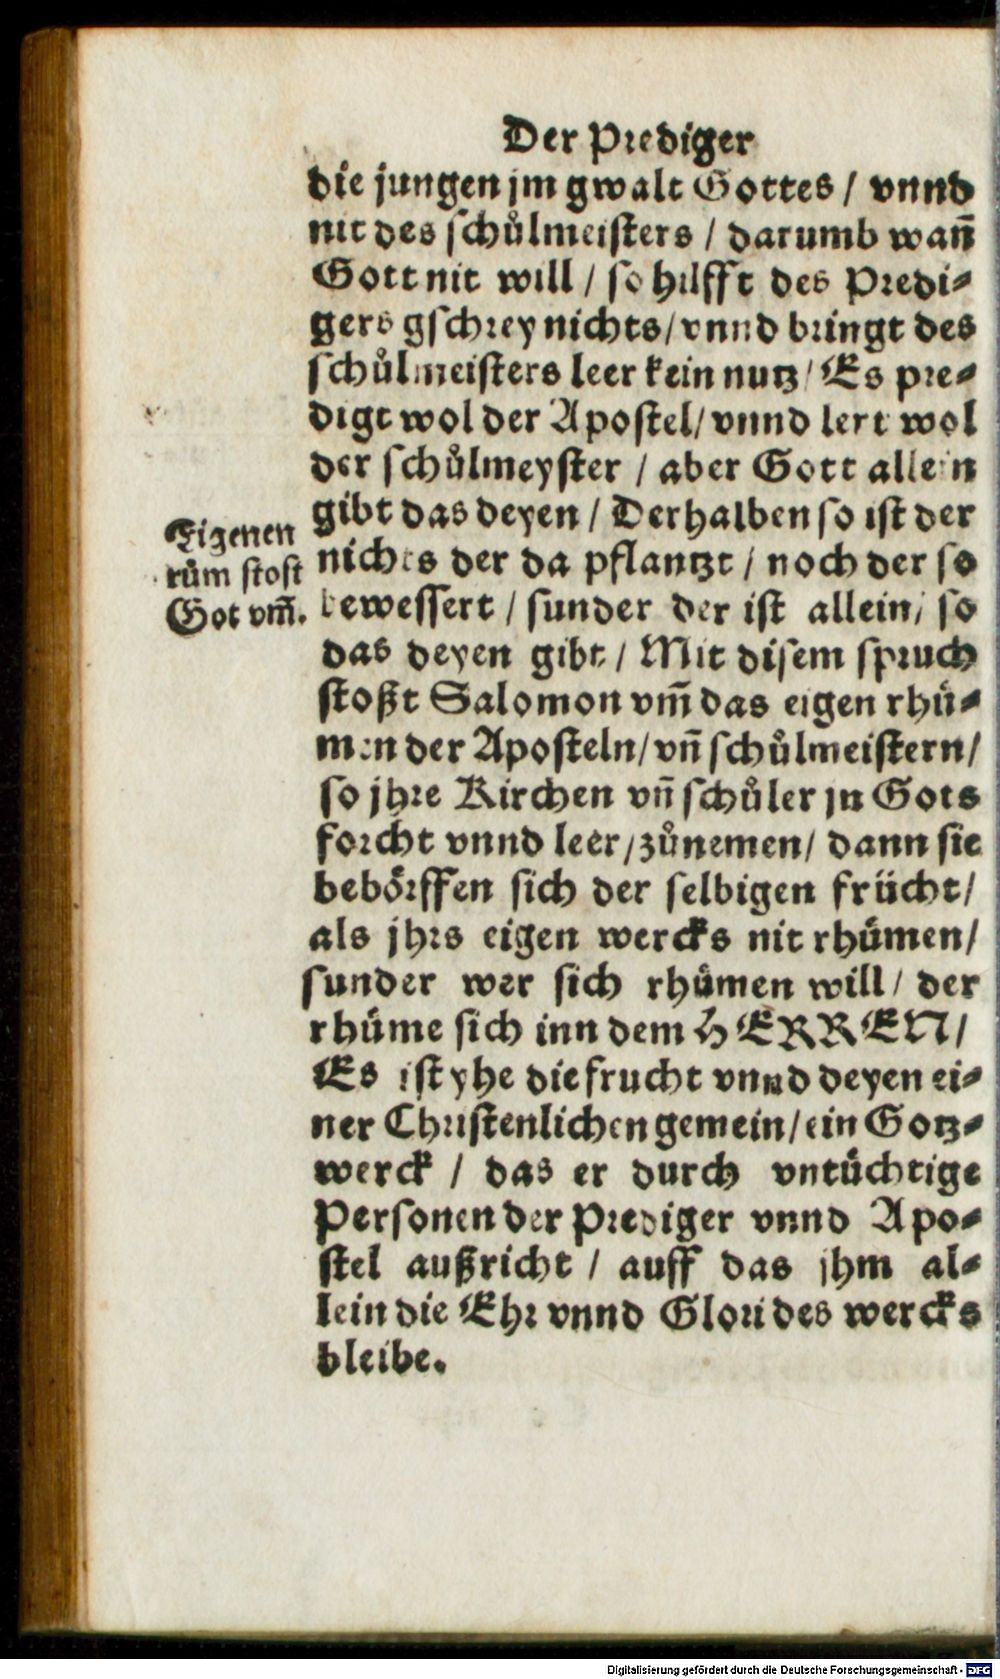 Der Prediger
die jungen jm gwalt Gottes / vnnd
nit des schůlmeisters / darumb wañ
Gott nit will / so hilfft des Predi-
gers gschrey nichts / vnnd bringt des
schůlmeisters leer kein nutz / Es pre-
digt wol der Apostel / vnnd lert wol
der schůlmeyster / aber Gott allein
gibt das deyen / Derhalben so ist der
nichts der da pflantzt / noch der so
bewessert / sunder der ist allein / so
das deyen gibt / Mit disem spruch
stoßt Salomon vm̃ das eigen rhuͤ-
men der Aposteln / vñ schůlmeistern /
so jhre Kirchen vñ schůler jn Gots
forcht vnnd leer / zůnemen / dann sie
bedoͤrffen sich der selbigen frücht /
als jhrs eigen wercks nit rhuͤmen /
sunder wer sich rhuͤmen will / der
rhuͤme sich inn dem HERREN /
Es ist yhe die frucht vnnd deyen ei-
ner Christenlichen gemein / ein Gotz-
werck / das er durch vntüchtige
Personen der Prediger vnnd Apo-
stel außricht / auff das jhm al-
lein die Ehr vnnd Glori des wercks
bleibe.
Eigenen
rům stost
Got vm̃.
Digitalisierung gefördert durch die Deutsche Forschungsgemeinschaft - DFG